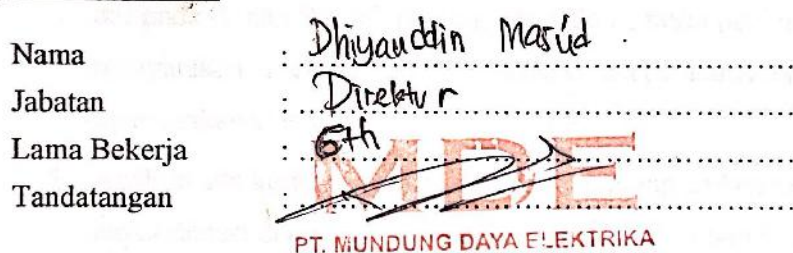 Nama : Dhiyauddin Mas'ud
Jabatan : Direktur
Lama Bekerja : 6th
Tandatangan :
MDE
PT. MUNDUNG DAYA ELEKTRIKA